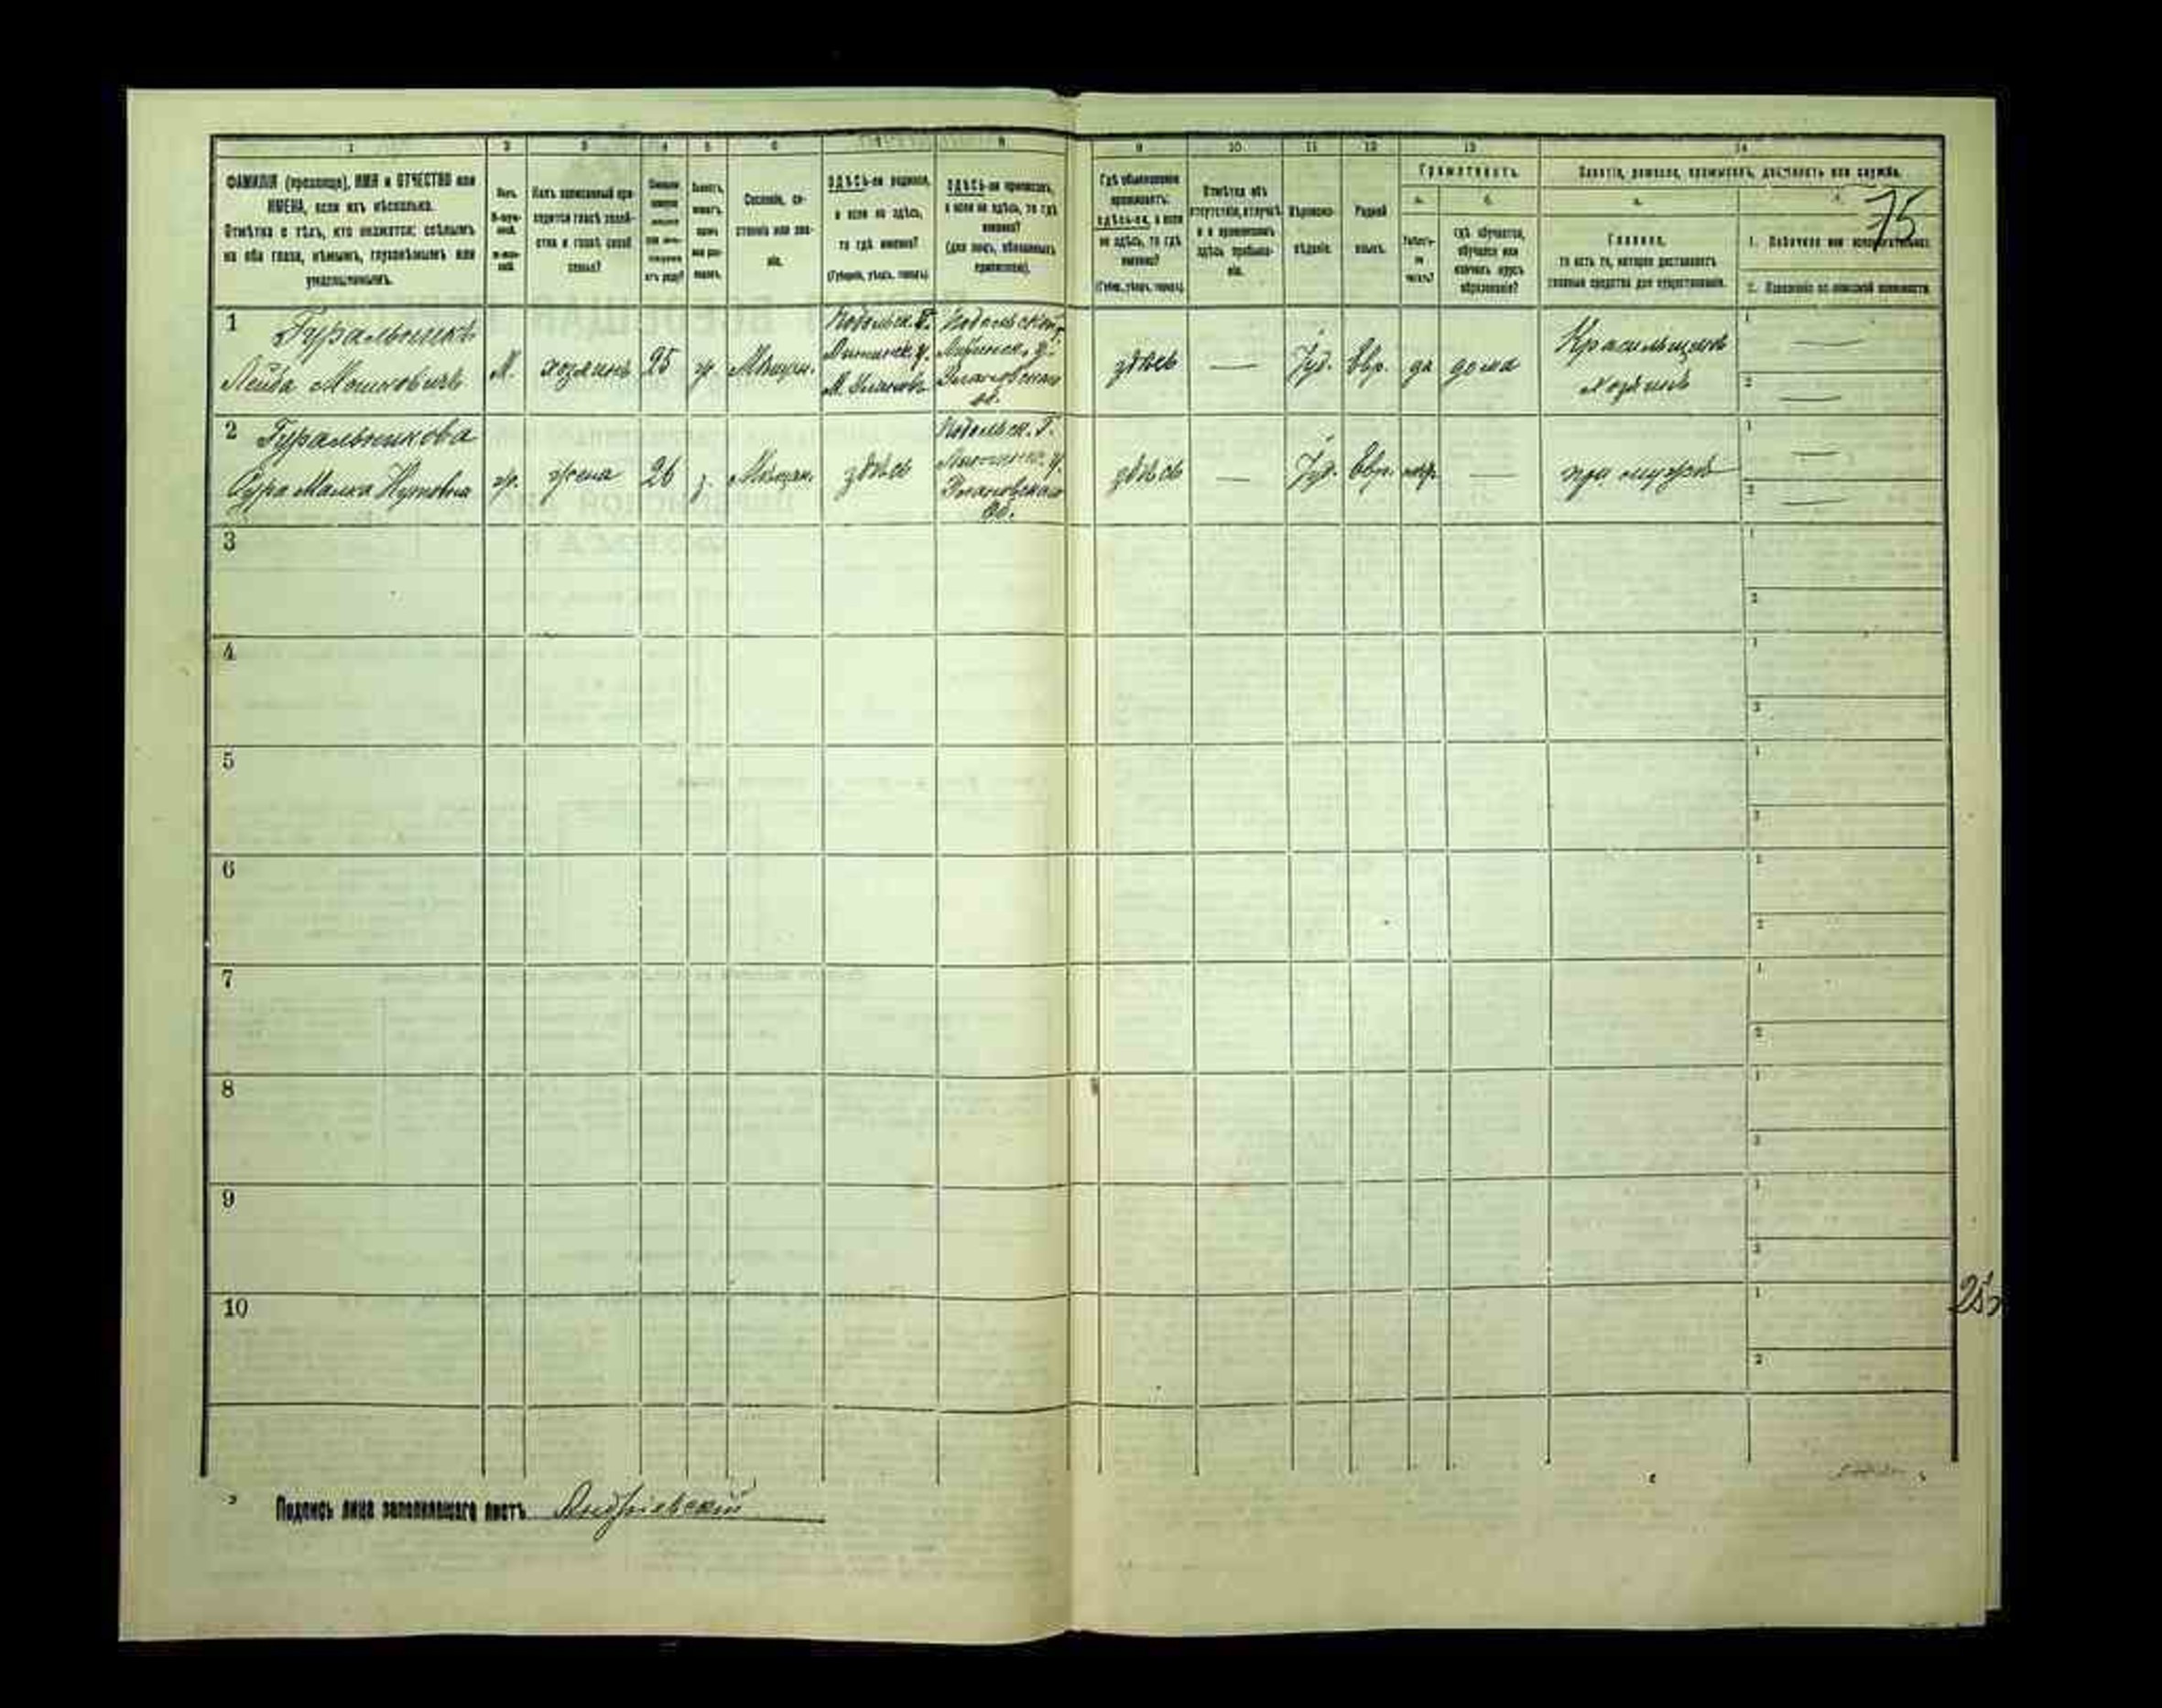 1 2 3 4 5 6 7 8 9 10 11 12 13 14
ФАМИЛІЯ (прозвище), ИМЯ и ОТЧЕСТВО или
ИМЕНА, если ихъ нѣсколько.
Отмѣтка о тѣхъ, кто окажется: слѣпымъ
на оба глаза, нѣмымъ, глухонѣмымъ или
умалишеннымъ.
Полъ.
М-муж-
ской.
Ж-жен-
скій.
Какъ записанный при-
ходится главѣ хозяй-
ства и главѣ своей
семьи?
Сословіе, со-
стояніе или зва-
ніе.
ЗДѢСЬ-ли родился,
а если не здѣсь,
то гдѣ именно?
(Губернія, уѣздъ, городъ).
ЗДѢСЬ-ли приписанъ,
а если не здѣсь, то гдѣ
именно?
(для лицъ, обязанныхъ
припискою).
Гдѣ обыкновенно
проживаетъ:
здѣсь-ли, а если
не здѣсь, то гдѣ
именно?
(Губер., уѣздъ, городъ).
Отмѣтка объ
отсутствіи, отлучкѣ
и о временномъ
здѣсь пребыва-
ніи.
Вѣроиспо-
вѣданіе.
Родной
языкъ.
Грамотность.
а.
Умѣетъ-
ли
читать?
б.
гдѣ обучается,
обучался или
кончилъ курсъ
образованія?
Занятіе, ремесло, промыселъ, должность или служба.
а.
Главное,
то есть то, которое доставляетъ
главныя средства для существованія.
75
1. Побочное или вспомогательное.
2. Положеніе по воинской повинности.
1 Гуральникъ
Лейба Мошковичъ
М.
хозяинъ
25
ж.
Мѣщан.
Подольск. Г.
Литинск. у.
М. Улановъ
Подольской Г.
Литинск. у.
Улановскаго
об.
здѣсь
—
Іуд.
Евр.
да
дома
Красильщикъ
хозяинъ
1 —
2 —
2 Гуральникова
Сура Малка Нутовна
ж.
жена
26
з.
Мѣщан.
здѣсь
Подольск. Г.
Литинск. у.
Улановскаго
Об.
здѣсь
—
Іуд.
Евр.
—
при мужѣ
1 —
2 —
3 1
2
4 1
2
5 1
2
6 1
2
7 1
2
8 1
2
9 1
2
10 1
2
Подпись лица заполнившаго листъ Андріевскій